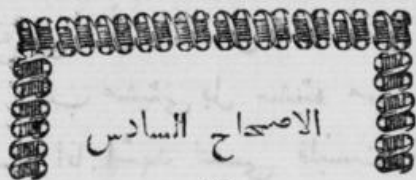 الاصحاح السادس